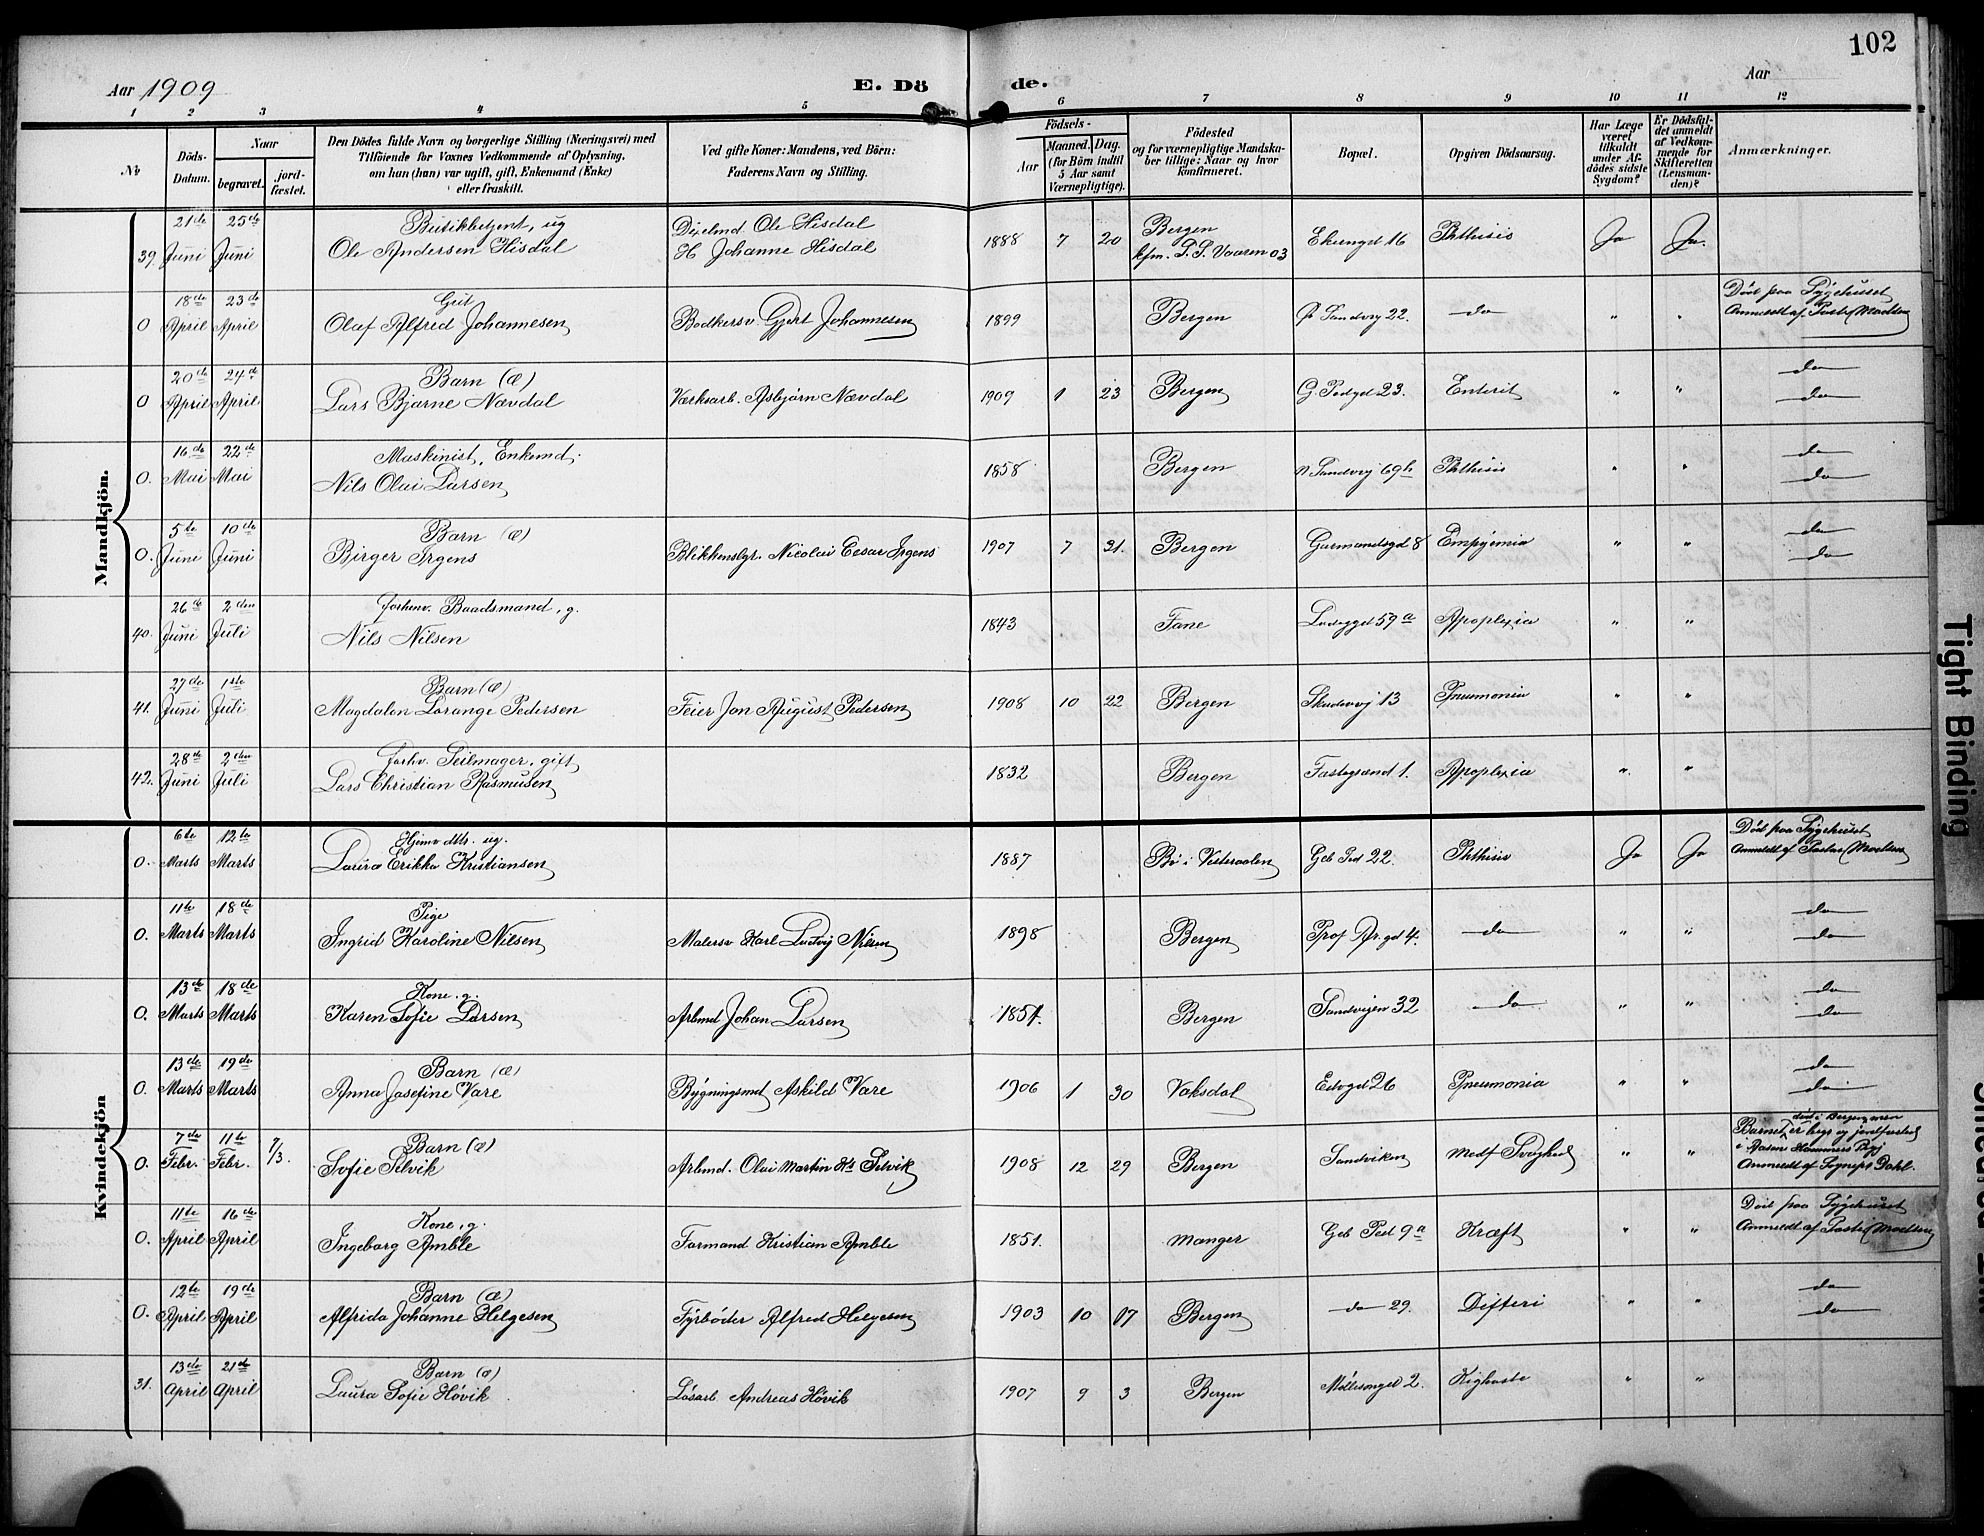 102
Aar 1909 E. Dö de. Aar
1 2 3 4 5 6 7 8 9 10 11 12
No
Döds-Datum.
Naar
begravet.
jordfæstet.
Den Dödes fulde Navn og borgerlige Stilling (Næringsvei) med Tilföiende for Voxnes Vedkommende af Oplysning, om han (hun) var ugift, gift, Enkemand (Enke) eller fraskilt.
Ved gifte Koner: Mandens, ved Börn: Faderens Navn og Stilling.
Födsels-
Aar
Maaned. Dag.
(for Börn indtil 5 Aar samt Værnepligtige).
Födested og for værnepligtige Mandskaber tillige: Naar og hvor konfirmeret.
Bopæl.
Opgiven Dödsaarsag.
Har Læge været tilkaldt under Afdødes sidste Sygdom?
Er Dödsfaldet anmeldt af Vedkommende for Skifteretten (Lensmanden)?
Anmærkninger.
Mandkjön.
39 21de Juni 25de Juni Butikbetjent, ug Ole Andersen Hisdal Ole Hisdal H Johanne Hisdal 1888 7 20 Bergen 03 16 Phthisis Ja Ja.
0 18de April 23de April Gut Olaf Alfred Johannesen Bødkersv. Gjert Johannesen 1899 Bergen Sandvig 22. do " " Död paa Sygehuset Anmeldt af
0 20de April 24de April Barn (æ) Lars Bjarne Nævdal Værksarb. Asbjørn Nævdal 1909 1 23 Bergen 23. Enterit " " do do
0. 16de Mai 22de Mai Maskinist, Enkemd. Nils Olai Larsen 1858 Bergen N Sandvig 69h Phthisis " " do do
0. 5te Juni 10de Juni Barn (æ) Birger Irgens Blikkenslgr. Nicolai Cesar Irgens 1907 7 31. Bergen 8 Empyemia " " do do
40. 26de Juni 2den Juli Forhenv. Baadsmand, g. Nils Nilsen 1843 Fane 59a Apoplexia " "
41. 27de Juni 1ste Juli Barn (æ) Magdalon Lorange Pedersen Feier Jon August Pedersen 1908 10 22 Bergen Skudevig 13 Pneumonia " "
42. 28de Juni 2den Juli Forhv. Seilmager, gift Lars Christian Rasmusen 1832 Bergen 1. Apoplexia " "
Kvindekjön
0. 6te Marts 12te Marts Hjemv dtt. ug. Laura Erikka Kristiansen 1887 Bø i Vesteraalen Geb Ped 22. Phthisis Ja Ja Död paa Sygehuset Anmeldt af
0. 11te Marts 18de Marts Pige Ingrid Karoline Nilsen Malersv Karl Ludvig Nilsen 1898 Bergen 4. do " " do do
0. 13de Marts 18de Marts Kone, g. Karen Sofie Larsen Arbmd Johan Larsen 1851. Bergen Sandvigen 32 do " " do do
0. 13de Marts 19de Marts Barn (æ) Anna Josefine Vare Bygningsmd Askild Vare 1906 1 30 Vaksdal 26 Pneumonia " " do do
0. 7de Febr. 11te Febr. 7/3. Barn (æ) Sofie Selvik Arbmd. Olai Martin Ks Selvik 1908 12 29 Bergen Sandviken Medf Svaghed " " Barnet død i Bergen, men er begr og jordfæstet i Hammers Anmeldt af Sognepr Dahl.
0. 11te April 16de April Kone, g. Ingeborg Amble Formand Kristian Amble 1851. Manger Geb Ped 9a Kræft " " Död paa Sygehuset Anmeldt af
0. 12te April 19de April Barn (æ) Alfrida Johanne Helgesen Fyrbøder Alfred Helgesen 1903 10 17 Bergen do 29. Difteri " " do do
31. 13de April 21de April Barn (æ) Laura Sofie Høvik Løsarb Andreas Høvik 1907 9 3 Bergen 2. Kighoste " "
Tight Binding